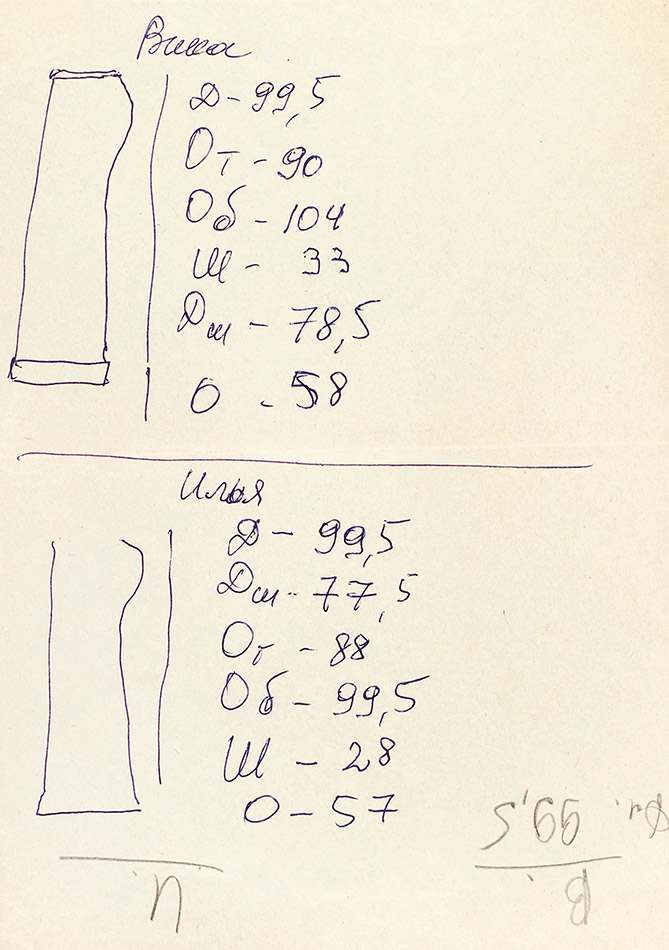 Д - 99,5
От - 90
Об - 104
Ш - 33
Дш - 78,5
О - 58
Илья
Д - 99,5
Дш - 77,5
От - 88
Об - 99,5
Ш - 28
О - 57
В.
Дл. 99,5
И.